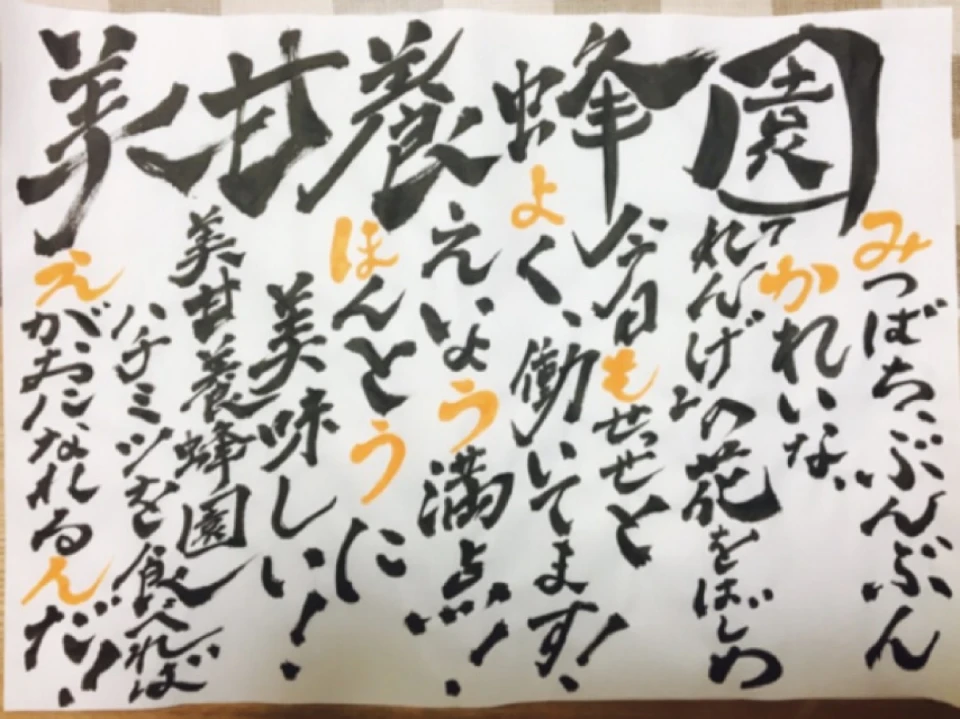 美甘養蜂園
みつばち、ぶんぶん
かれいな、
れんげの花をはじめ
今日もせっせと
よく、働いてます！
えいよう満点！
ほんとうに
美味しい！
美甘養蜂園の
ハチミツを食べれば
えがおになれるんだ！